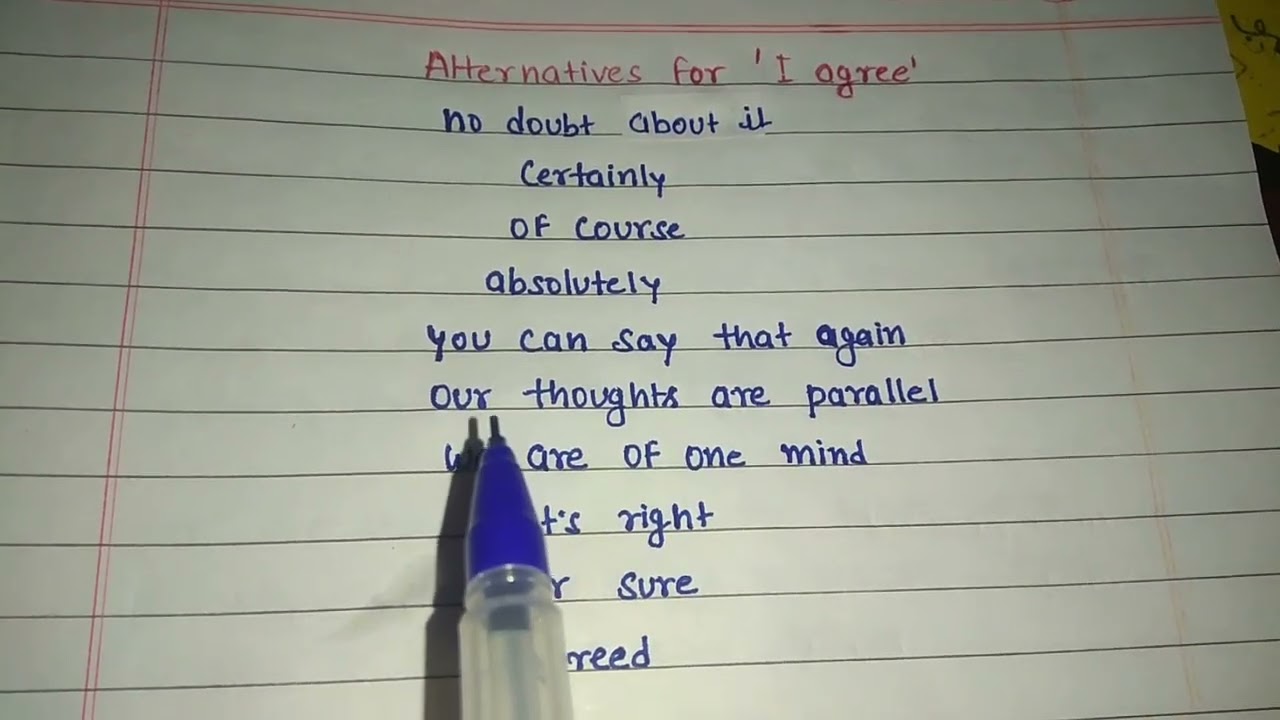 Alternatives for 'I agree'
no doubt about it
Certainly
of course
absolutely
you can say that again
our thoughts are parallel
are of one mind
right
sure